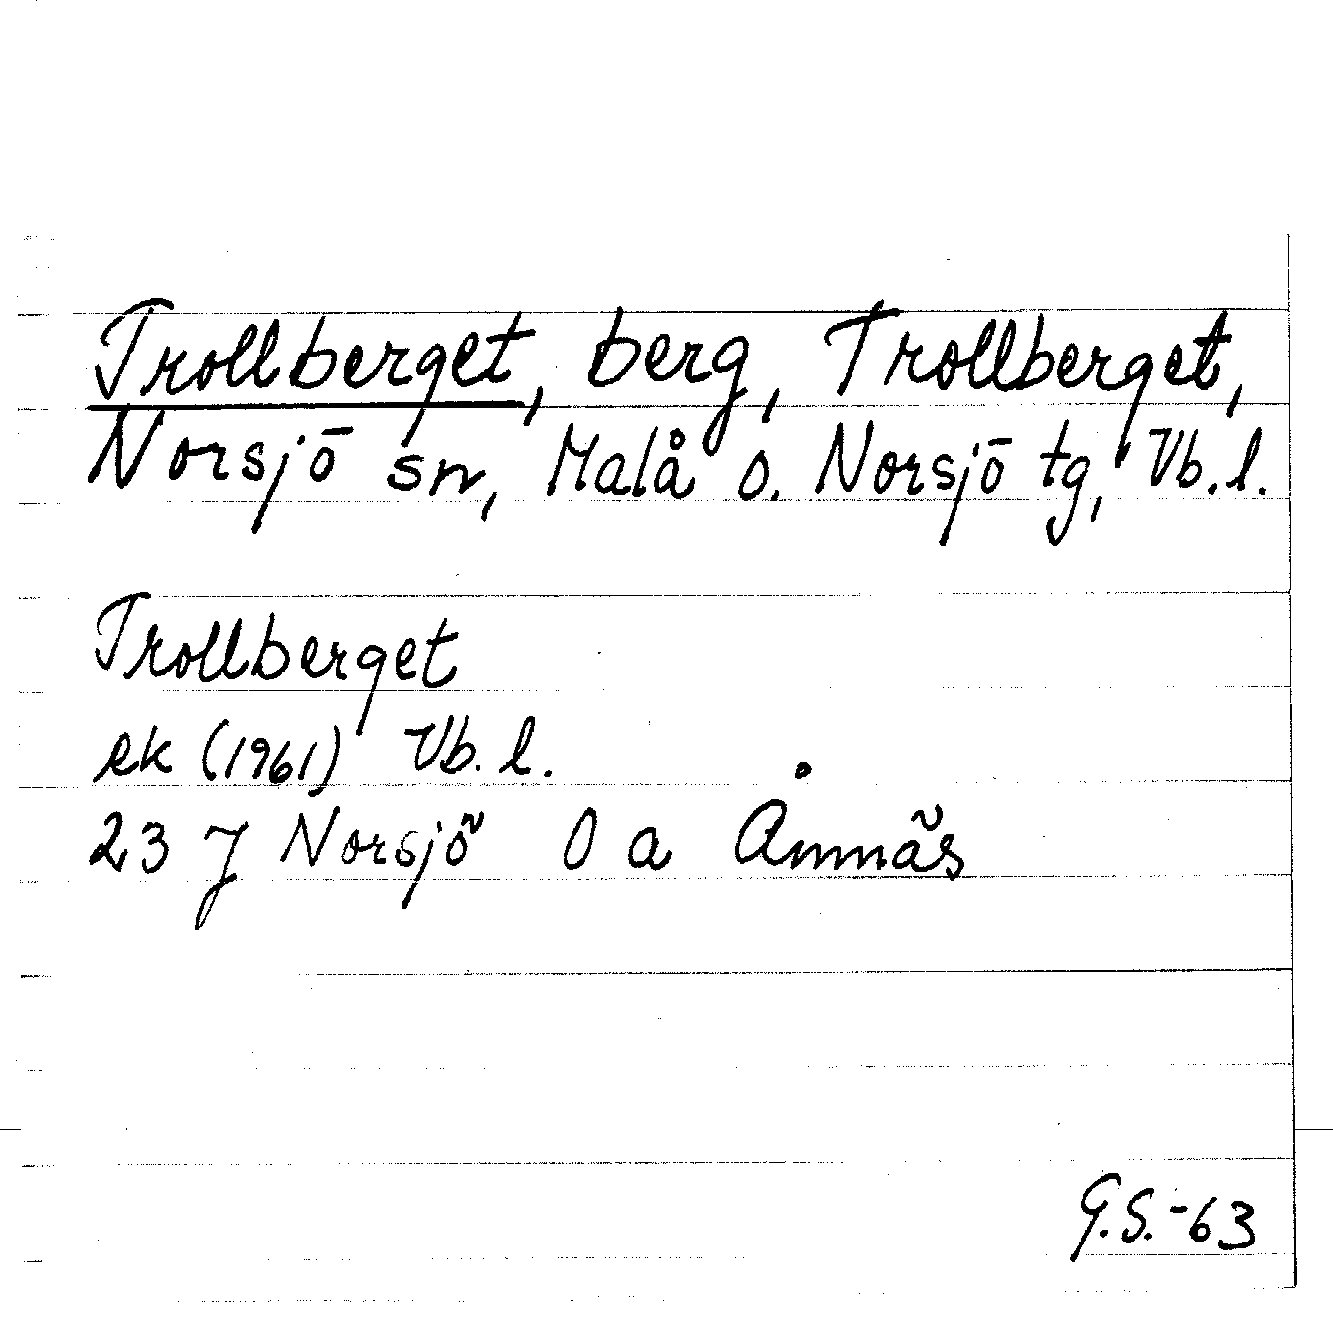 Trollberget, berg, Trollberget,
Norsjö sn, Malå o. Norsjö tg, Vb. l.
Trollberget
ek (1961) Vb. l.
23 J Norsjö 0 a Åmnäs
G.S.-63